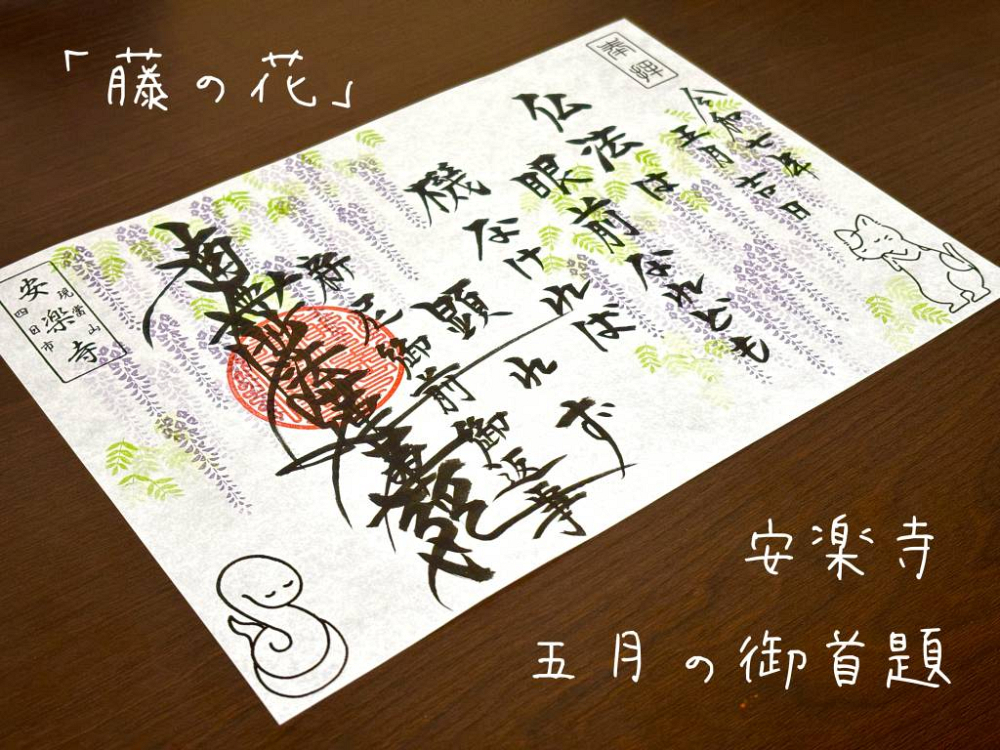 「藤の花」
令和七年
五月
仏法は
眼前なれども
機なければ
顕れず
新尼御前御返事
南無妙法蓮華経
現常山
安楽寺
四日市
安楽寺
五月の御首題